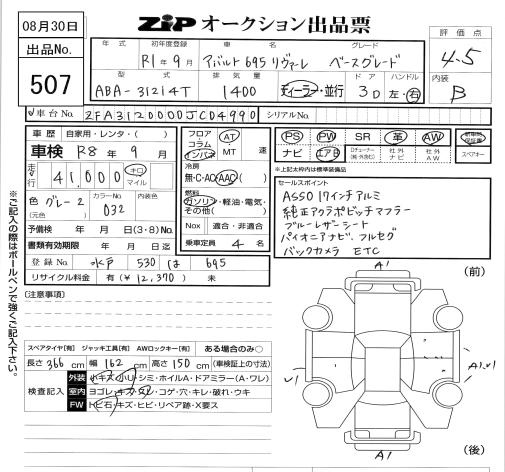 08月30日
出品No.
507
ZIP オークション出品票
年式 初年度登録 車名 グレード
R1年9月 アバルト695リヴァーレ ベースグレード
型式 排気量 ドア ハンドル
ABA-31214T 1400 ディーラー・並行 3D 左・右
評価点
4.5
内装
B
車台No. ZFA3120000JC04990 シリアルNo.
車歴 自家用・レンタ・( )
車検 R8年9月
走行 41,000 キロ マイル
色 グレー2 (元色) カラーNo. 032 内装色
予備検 年 月 日(3・8)No.
書類有効期限 年 月 日迄
登録No. 水戸 530 は 695
リサイクル料金 有(¥12,370) 未
フロア コラム インパネ AT MT 速
冷房
無・C・AC(AAC)
燃料
ガソリン・軽油・電気・その他( )
Nox 適合・非適合
乗車定員 4名
PS PW SR 革 AW
ナビ エアB Dチューナー 社外ナビ 社外AW スペアキー
*上記太枠内は標準装備品
セールスポイント
ASSO 17インチアルミ
純正アクラポビッチマフラー
ブルーレザーシート
パイオニアナビ、フルセグ
バックカメラ ETC
※ご記入の際はボールペンで強くご記入下さい。
(注意事項)
スペアタイヤ[有] ジャッキ工具[有] AWロックキー[有] ある場合のみ○
長さ366cm 幅162cm 高さ150cm (車検証上の寸法)
検査記入
外装 小キズ・小凹・シミ・ホイルA・ドアミラー(A・ワレ)
室内 ヨゴレ・キズ・スレ・コゲ・穴・キレ・破れ・ウキ
FW トビ石・キズ・ヒビ・リペア跡・X要ス
(前)
A1
A1
(後)